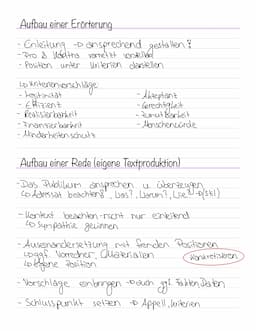 Aufbau einer Erörterung
- Einleitung → ansprechend gestalten!
- Pro & Kontra vernetzt vorstellen
- Position unter Kriterien darstellen
↳ Kriterienvorschläge:
- Legitimität - Akzeptanz
- Effizient - Gerechtigkeit
- Realisierbarkeit - Zumutbarkeit
- Finanzierbarkeit - Menschenwürde
- Minderheitenschutz
Aufbau einer Rede (eigene Textproduktion)
- Das Publikum ansprechen u. überzeugen
↳ Adressat beachten! Was?, Warum?, Wie?
- Kontext beachten - nicht nur einleitend
↳ Sympathie gewinnen
- Auseinandersetzung mit fremden Positionen
↳ ggf. Vorredner, Materialien
↳ eigene Position
Konkretisieren
- Vorschläge einbringen → auch ggf. Fakten, Daten
- Schlusspunkt setzen → Appell, Kriterien